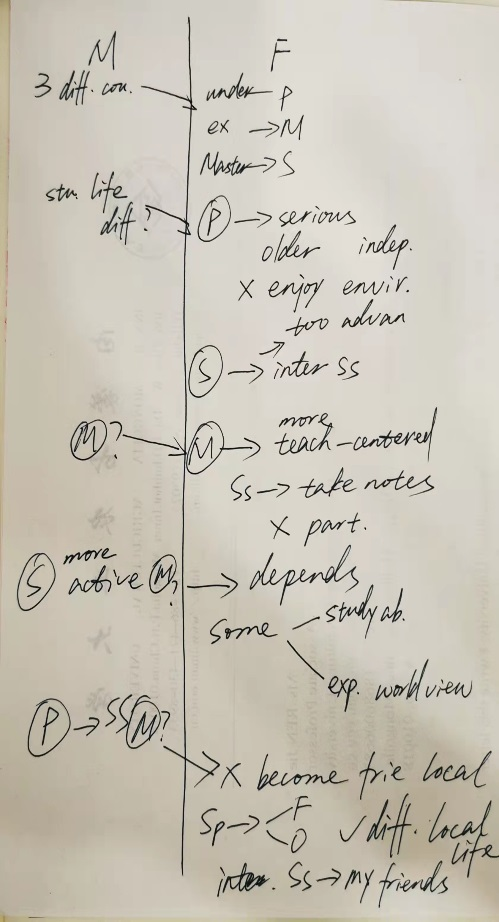 M F
3 diff. cou. under P
ex → M
Master → S
stu. life diff? P → serious
older indep.
X enjoy envir.
too advan
S → inter Ss
M? M → more
teach-centered
Ss → take notes
X part.
S more active M? → depends
some study ab.
exp. worldview
P → SS M?
X become frie local
Sp → F
O ✓ diff. local life
inter. Ss → my friends